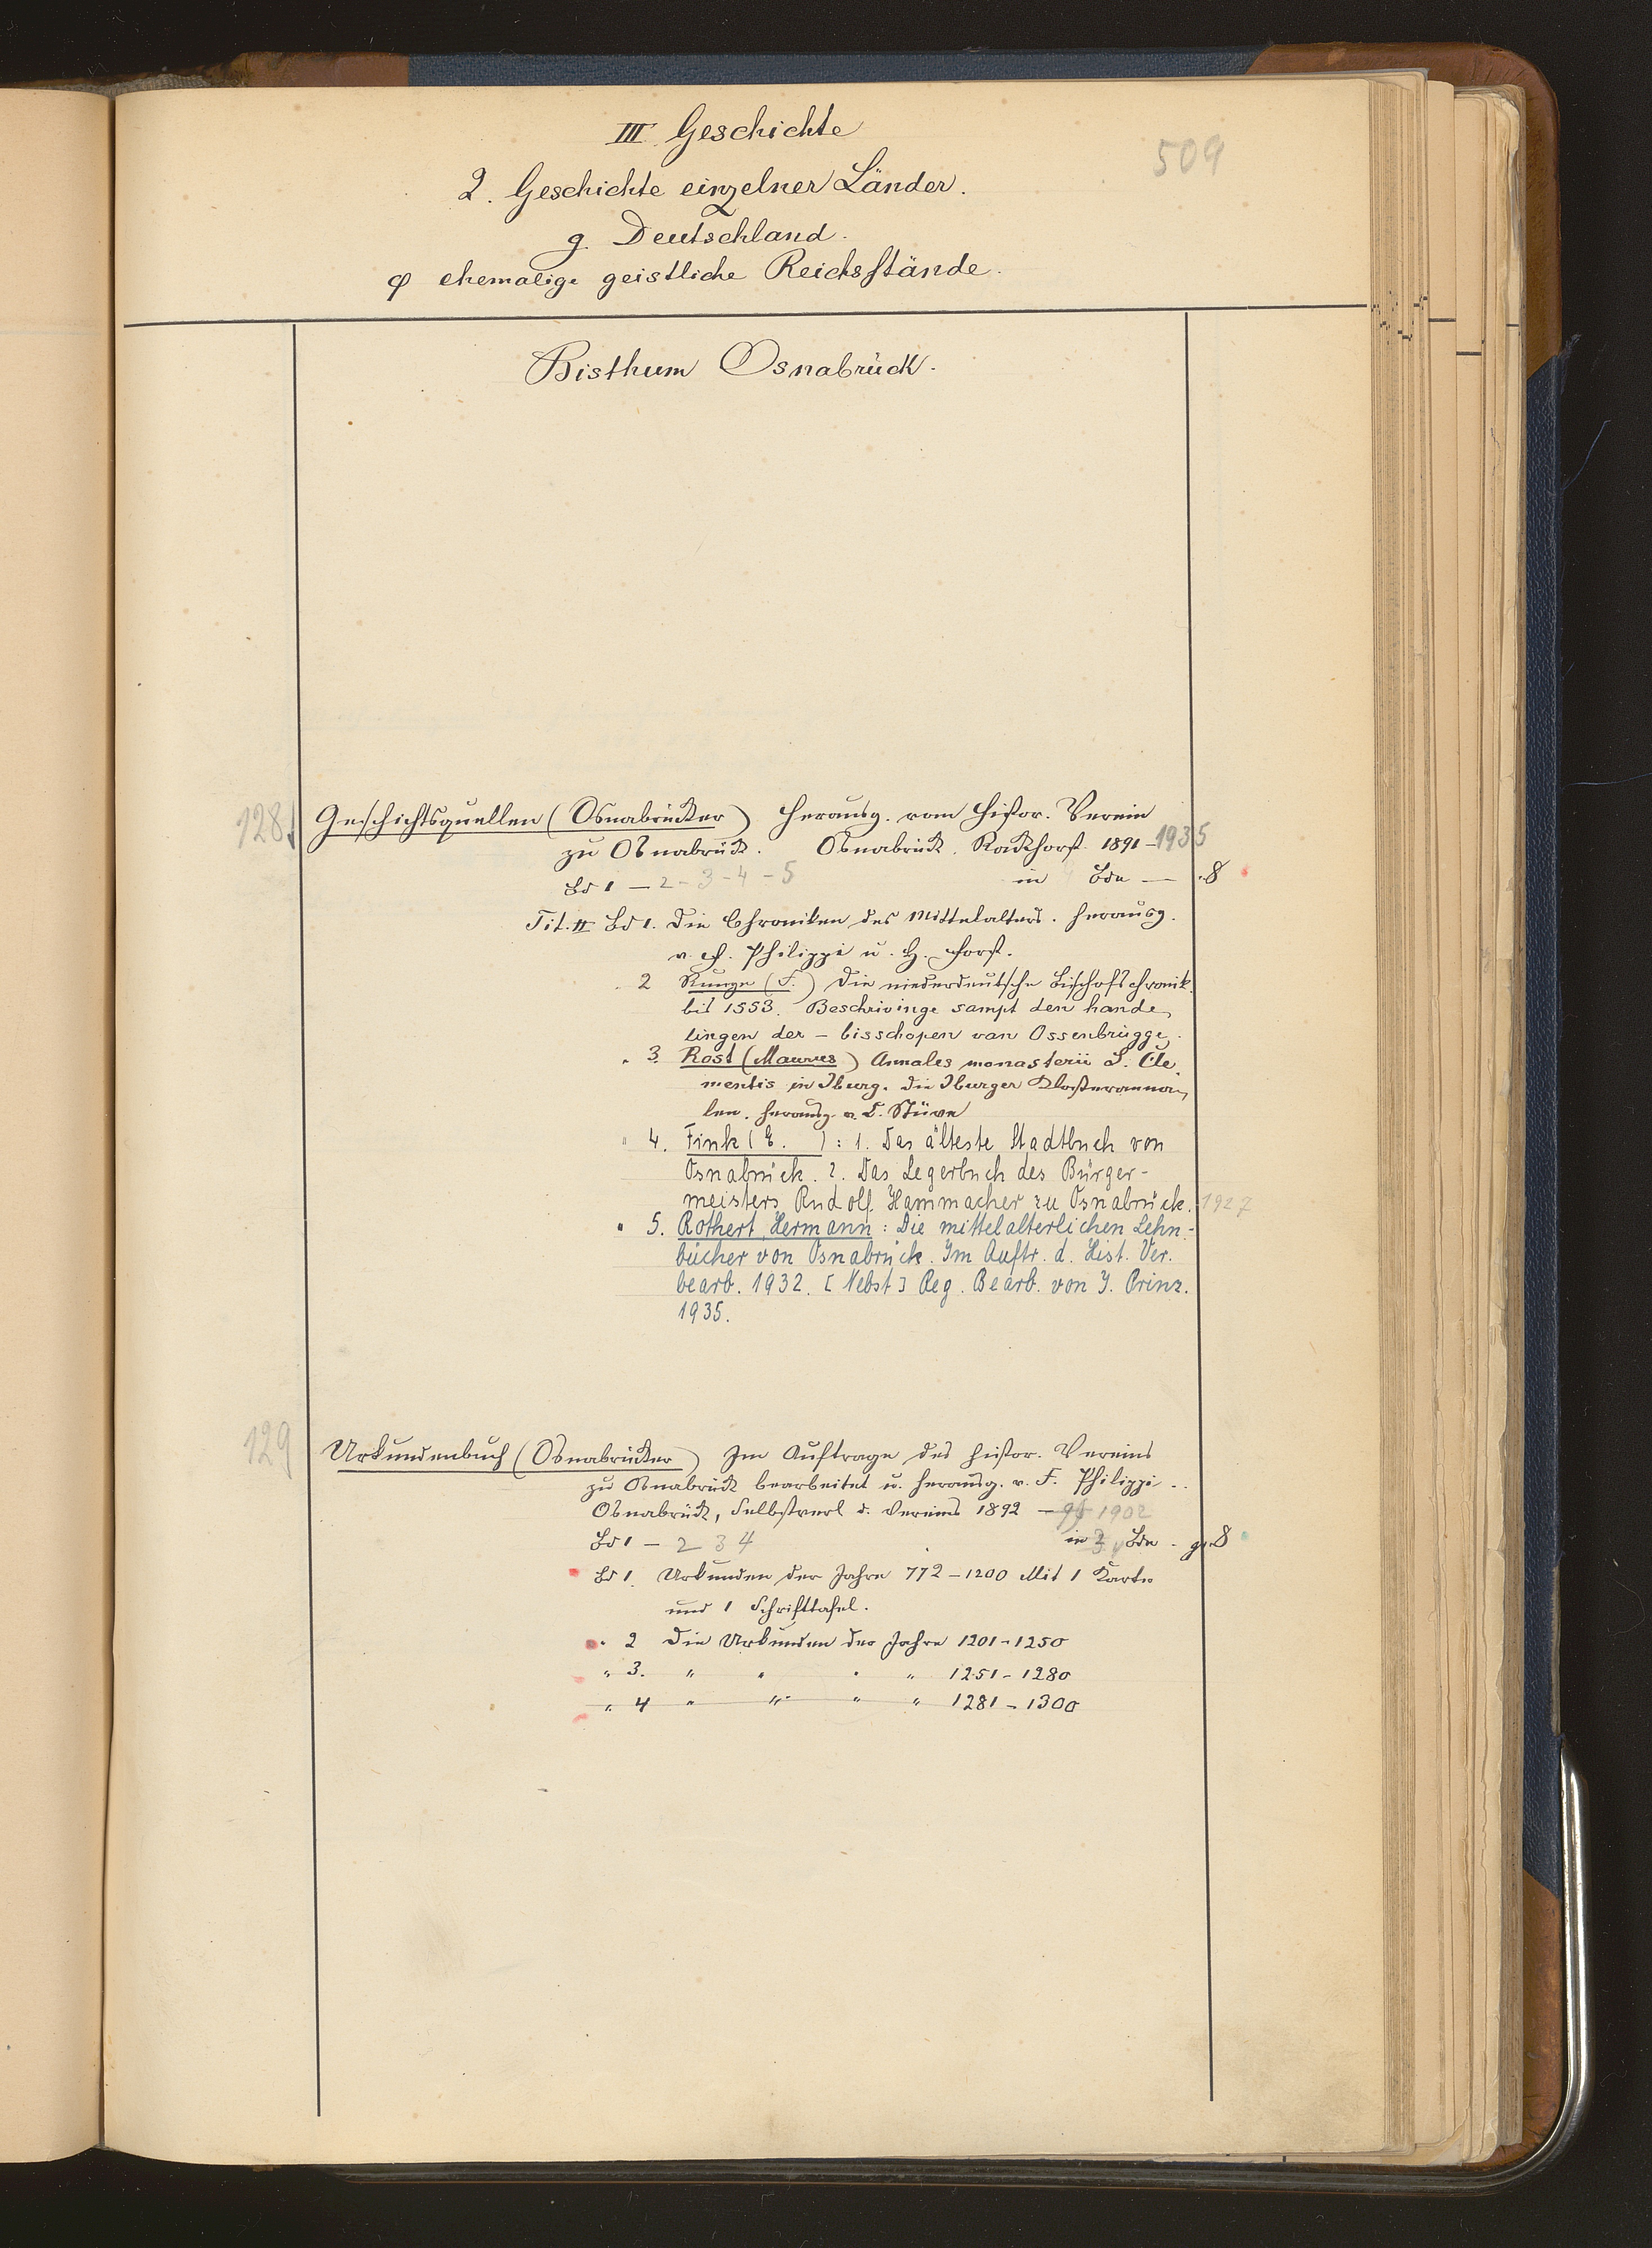 III Geschichte
509
2. Geschichte einzelner Länder.
g. Deutschland.
φ ehemalige geistliche Reichsstände.
Bisthum Osnabrück.
128. Geschichtsquellen (Osnabrücker) Herausg. vom histor. Verein
zu Osnabrück. Osnabrück. Rackhorst 1891-1935
Bd 1 - 2 - 3 - 4 - 5 in Bdn — 8
Tit. II Bd 1. Die Chroniken des Mittelalters. herausg.
v. F. Philippi u. H. Forst.
" 2 Runge (F.) Die niederdeutsche Bischofschronik
bis 1553. Beschrivinge sampt den hande
lingen der - bisschopen van Ossenbrügge.
" 3. Rost (Maurus) Annales monasterii S. Cle
mentis in Iburg. Die Iburger Klosteranna
len. herausg. v. C. Stüve
" 4. Fink (E. ): 1. Das älteste Stadtbuch von
Osnabrück. 2. Das Legerbuch des Bürger-
meisters Rudolf Hammacher zu Osnabrück. 1927
" 5. Rothert, Hermann: Die mittelalterlichen Lehn-
bücher von Osnabrück. Im Auftr. d. Hist. Ver.
bearb. 1932. [Nebst] Reg. Bearb. von J. Prinz.
1935.
129 Urkundenbuch (Osnabrücker) Im Auftrage des histor. Vereins
zu Osnabrück bearbeitet u. herausg. v. F. Philippi..
Osnabrück, Selbstverl d. Vereins 1892 - 1902
Bd 1 - 2 3 4 in Bdn - gr. 8
Bd 1. Urkunden der Jahre 772-1200 Mit 1 Karte
und 1 Schrifttafel.
" 2 Die Urkunden der Jahre 1201-1250
" 3. " " " " 1251-1280
" 4 " " " " 1281-1300